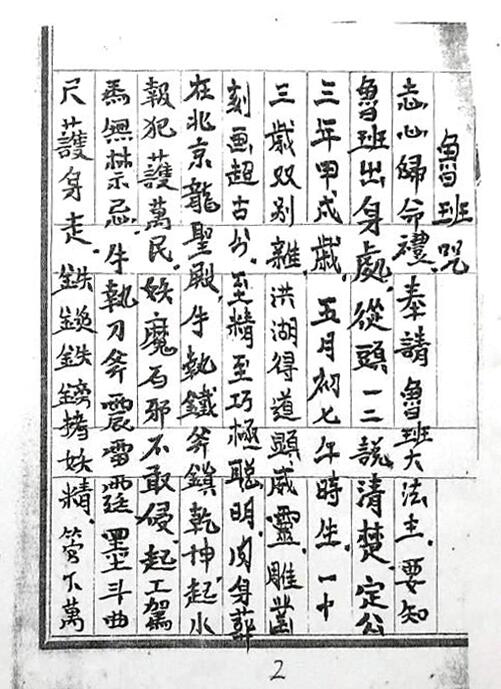 魯班咒
志心歸命禮.奉請魯班大法主.要知
魯班出身處.從頭一二說清楚定公
三年甲戌歲.五月初七午時生.一十
三歲双别離.洪湖得道顕威靈.雕鑿
刻画超古今.至精至巧極聰明.肉身葬
在北京龍聖殿.手執鐵斧鎮乾坤.起水
報犯護萬民.妖魔百邪不敢侵.起工駕
馬無禁忌.手執刀斧震雷霆墨斗曲
尺護身走.鉄鎚鉄妖精.管下萬
2